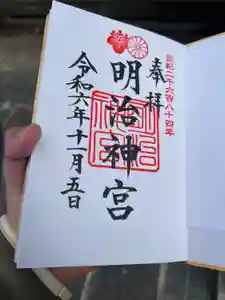 皇紀二千六百八十四年
奉拝
明治神宮
令和六年十一月五日